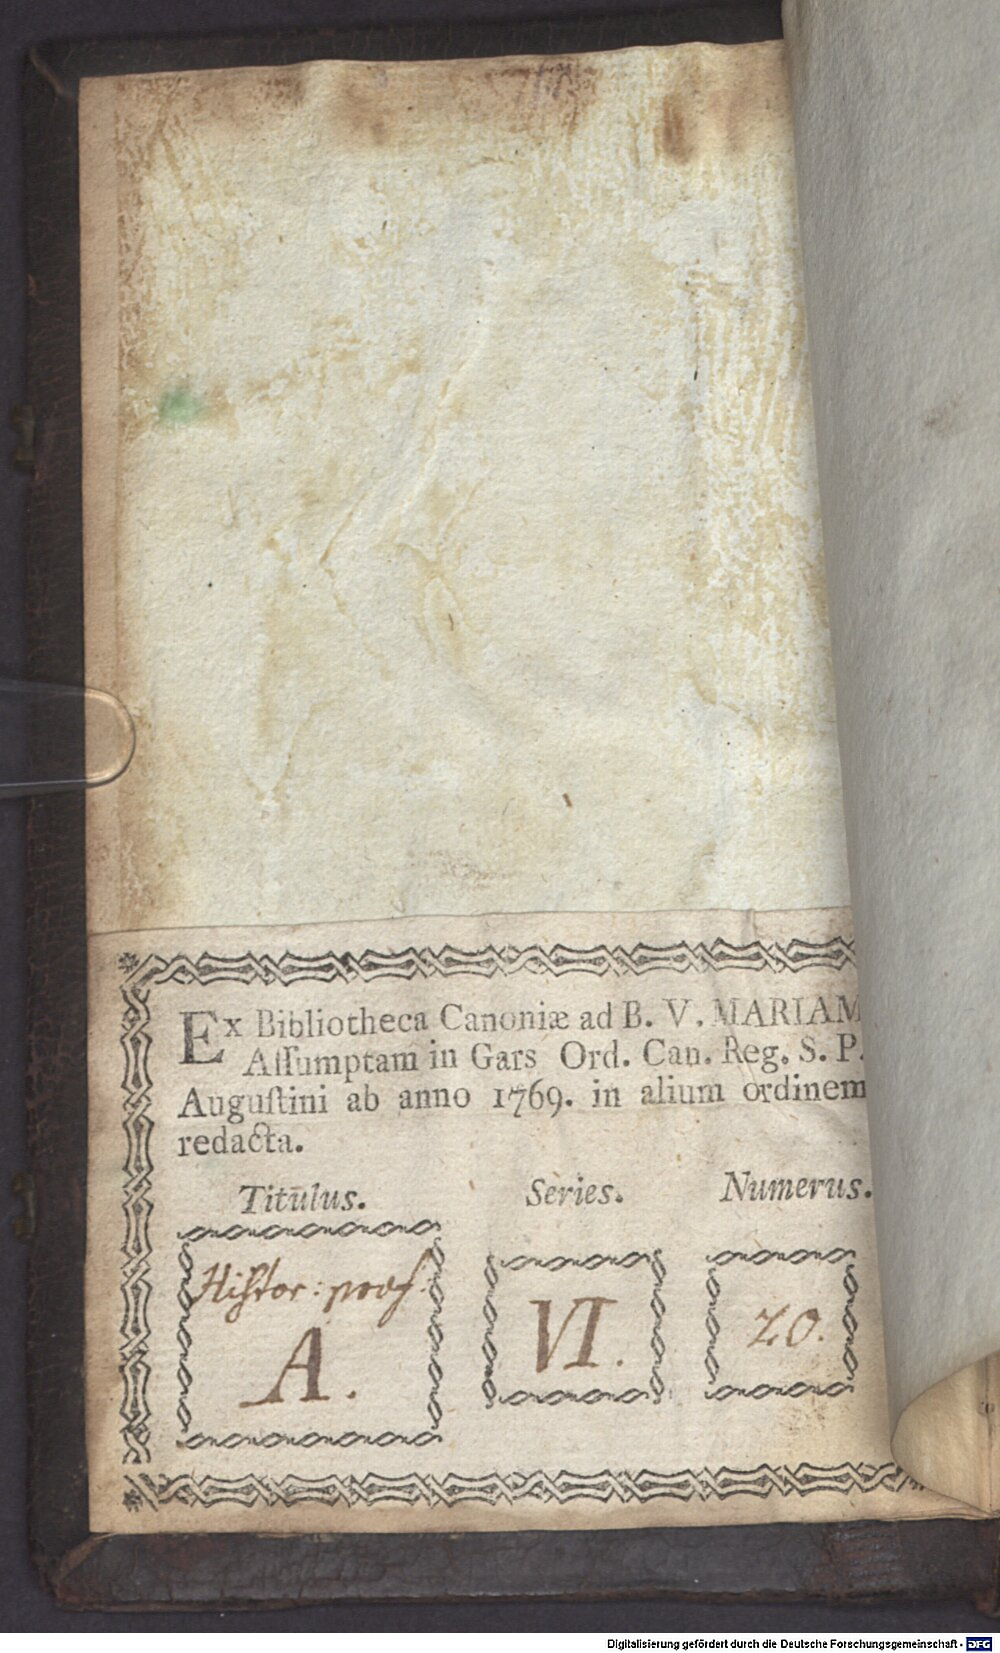 Ex Bibliotheca Canoniæ ad B. V. MARIAM
Aſſumptam in Gars Ord. Can. Reg. S. P.
Auguſtini ab anno 1769. in alium ordinem
redacta.
Titulus. Series. Numerus.
Histor: prof.
A. VI. 20.
Digitalisierung gefördert durch die Deutsche Forschungsgemeinschaft - DFG